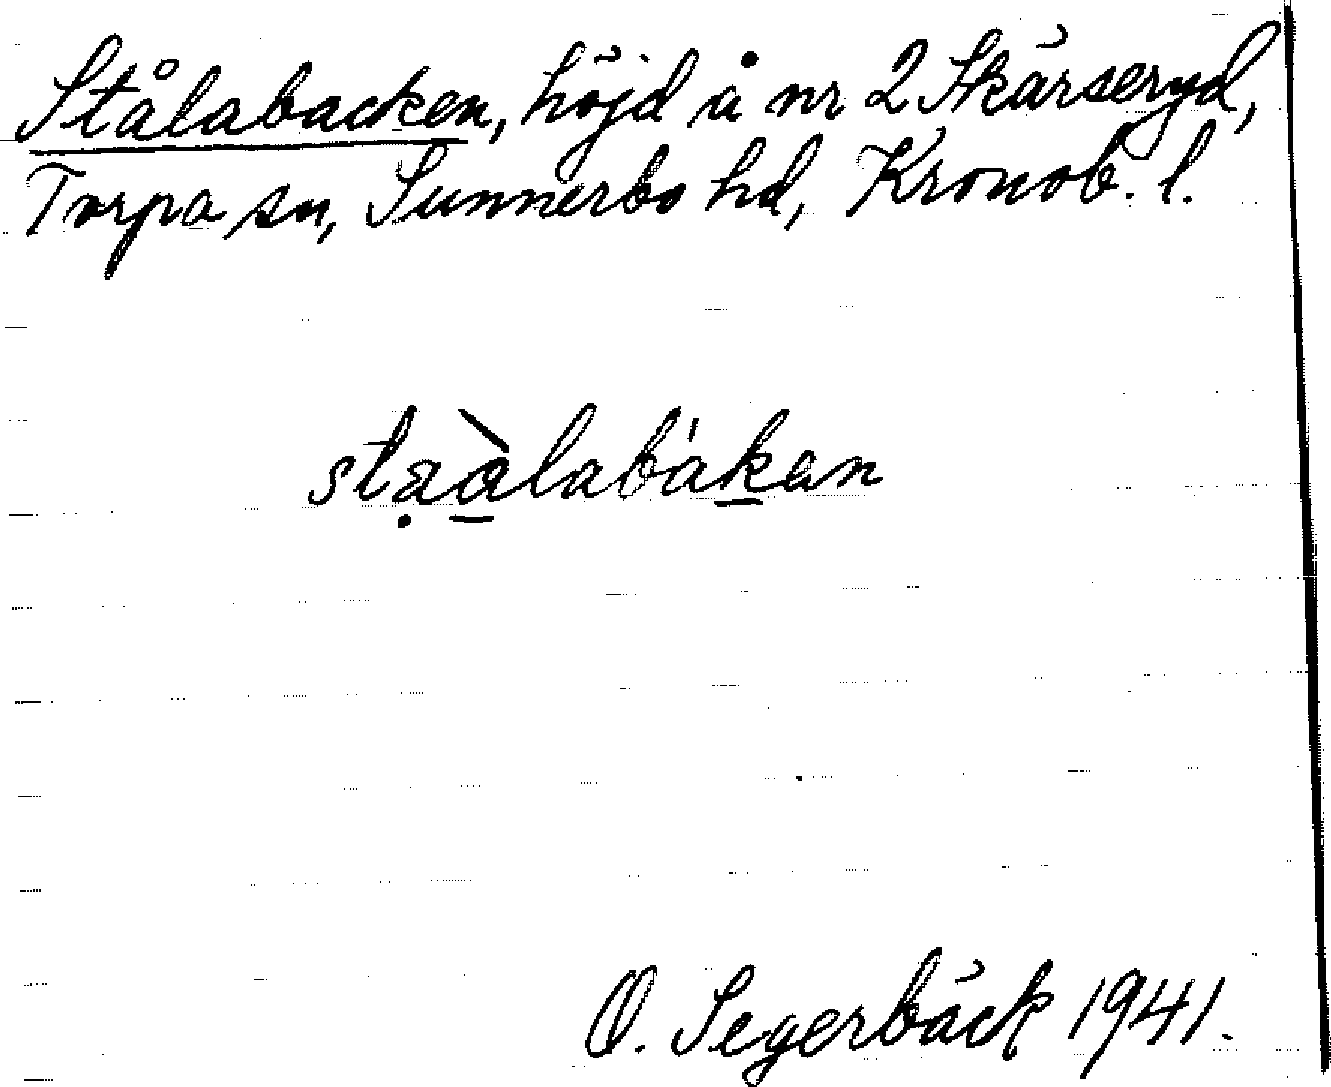 Stålabacken, höjd å nr 2 Skärseryd,
Torpa sn, Sunnerbo hd, Kronob. l.
stạà̱labák̲an
O. Segerbäck 1941.